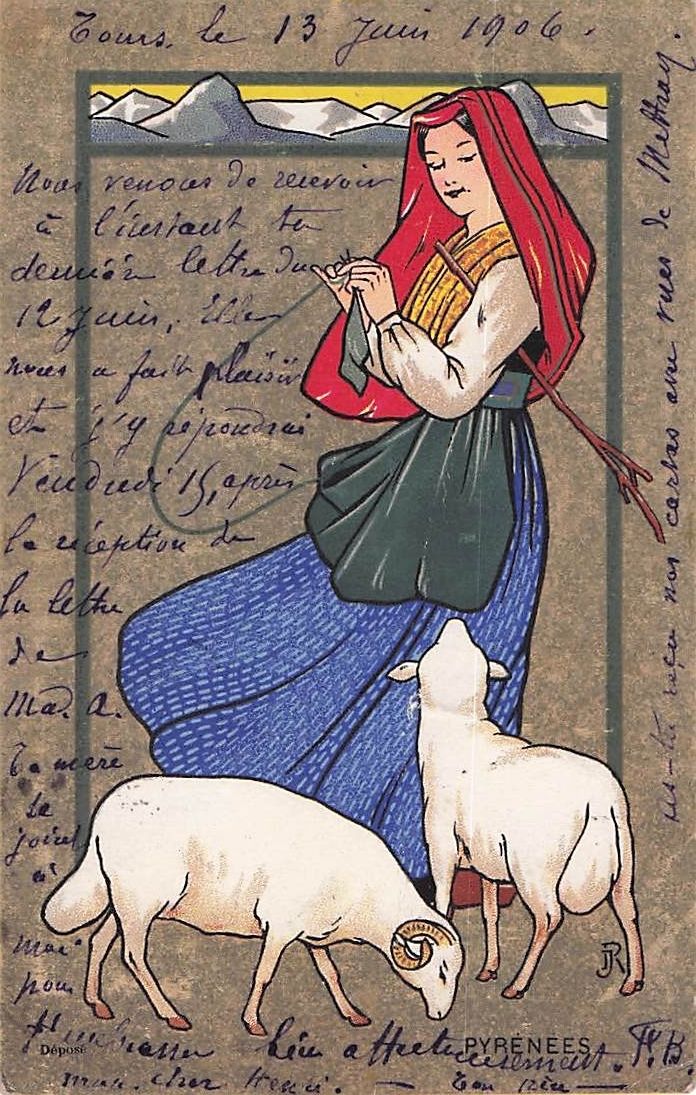 Tours, le 13 Juin 1906.
Nous venons de recevoir
à l'instant ta
dernière lettre du
12 Juin, Elle
nous a fait plaisir
et j'y répondrai
Vendredi 15, après
la réception de
la lettre
de
Mad. A.
Ta mère
se
joint
à
moi
pour
t'embrasser bien affectueusement.
mon cher Henri. — Ton père —
as-tu reçu nos cartes avec vues de Mettray.
JR
Déposé
PYRÉNÉES